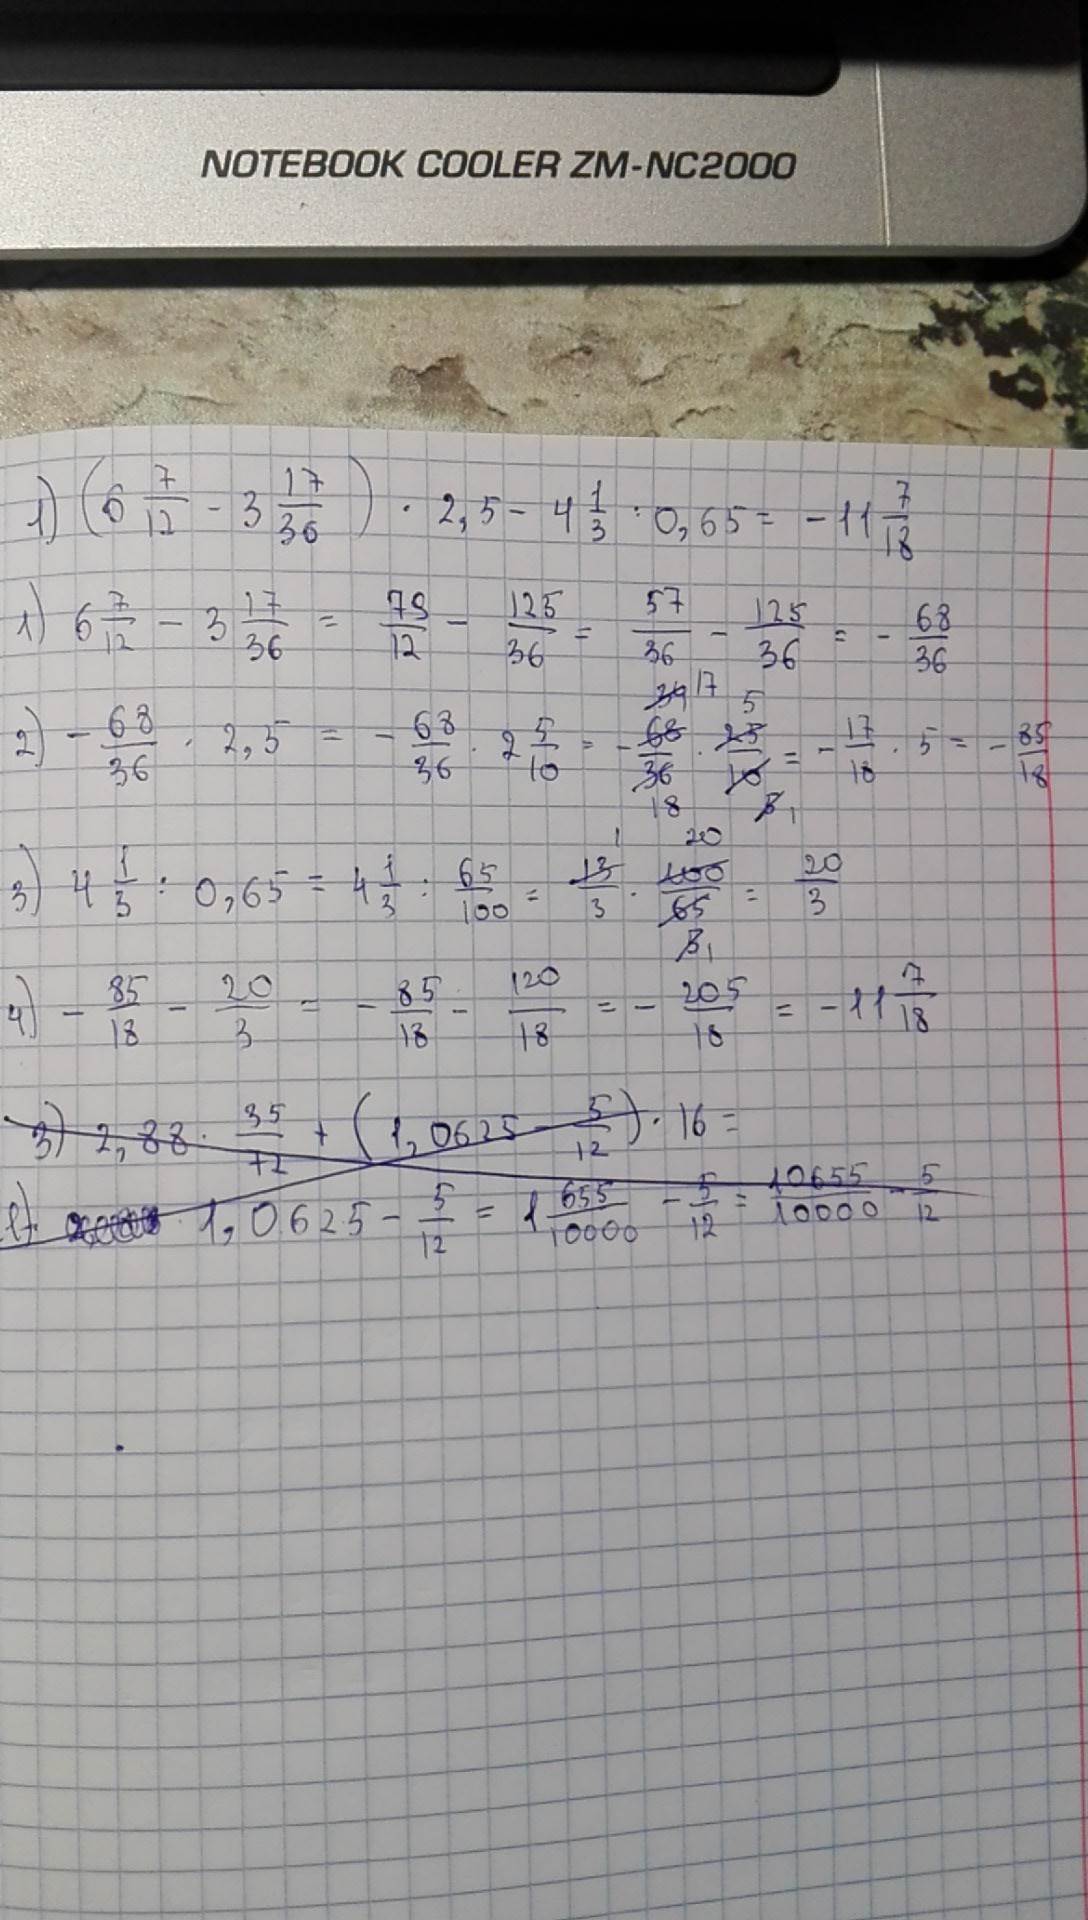 NOTEBOOK COOLER ZM-NC2000
1) (6 7/12 - 3 17/36) · 2,5 - 4 1/3 : 0,65 = -11 7/18
1) 6 7/12 - 3 17/36 = 79/12 - 125/36 = 57/36 - 125/36 = - 68/36
2) - 68/36 · 2,5 = - 68/36 · 2 5/10 = - 68/36 · 25/10 = - 17/18 · 5 = - 85/18
3) 4 1/3 : 0,65 = 4 1/3 : 65/100 = 13/3 · 100/65 = 20/3
4) - 85/18 - 20/3 = - 85/18 - 120/18 = - 205/18 = -11 7/18
3) 2,88 · 35/72 + (1,0625 - 5/12) · 16 =
1,0625 - 5/12 = 1 655/10000 - 5/12 = 10655/10000 - 5/12